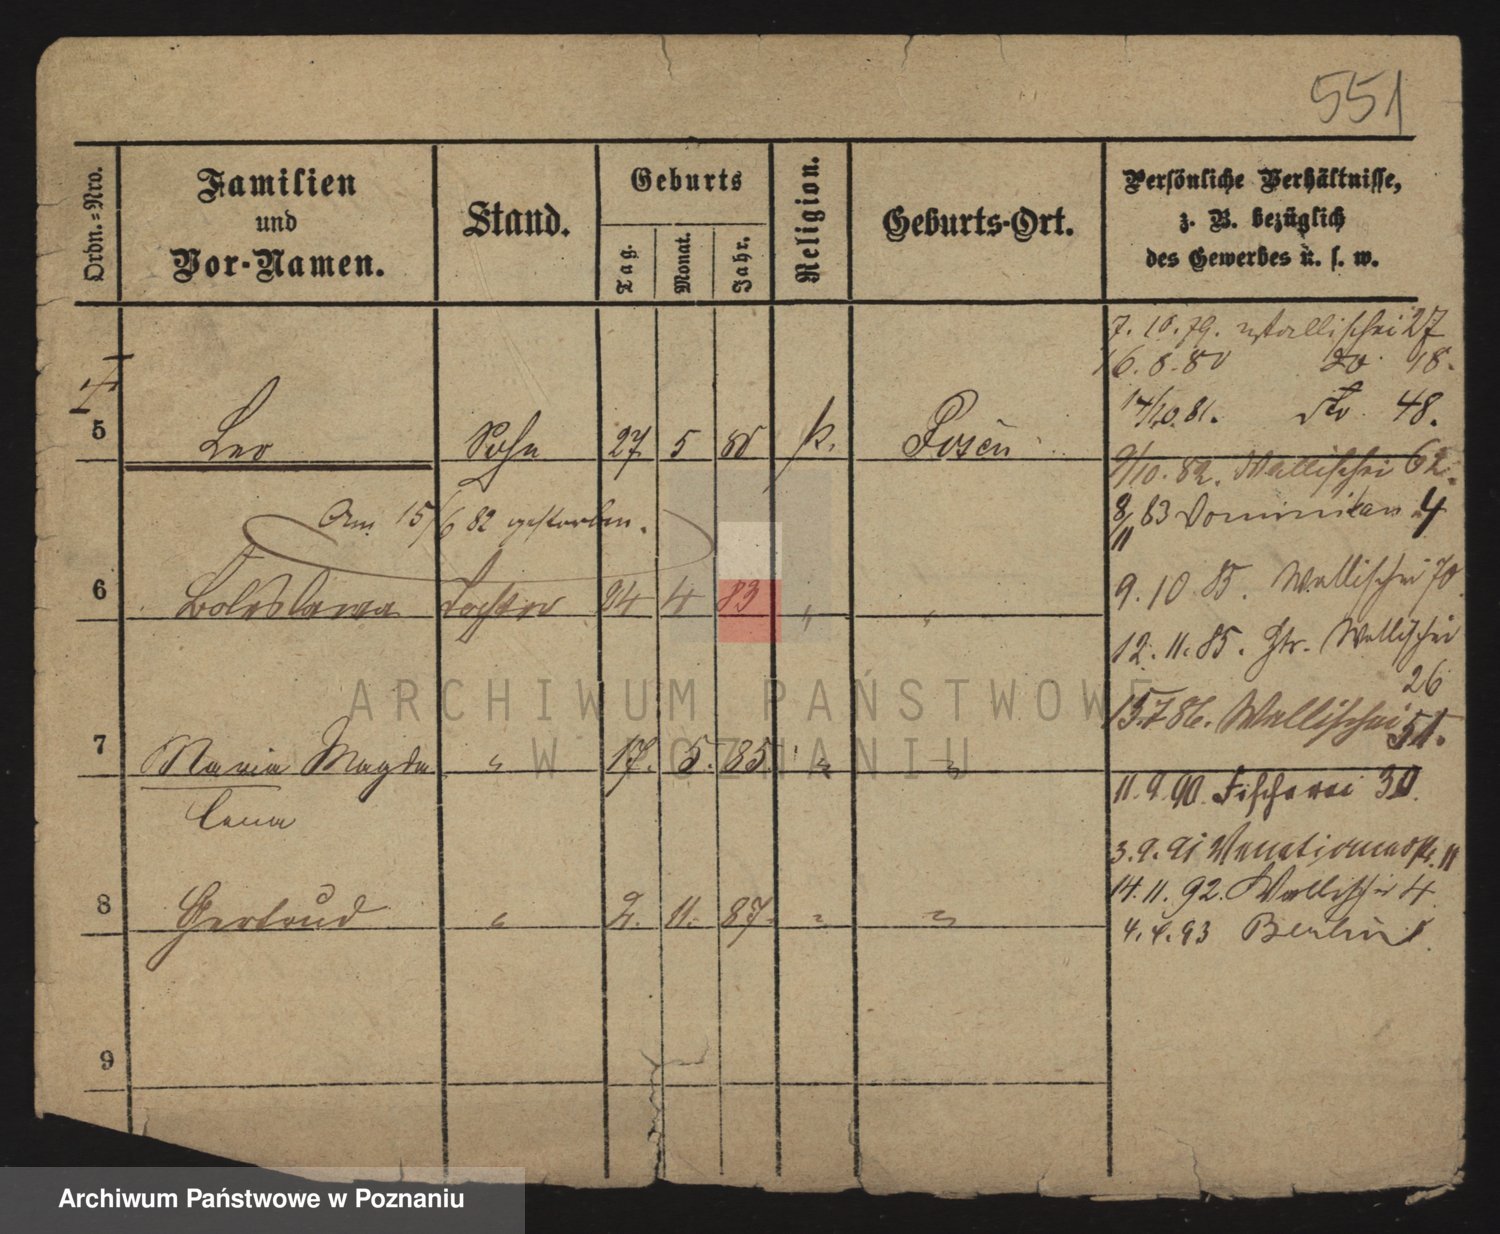 551
Ordn.=Nro.
Familien
und
Vor-Namen.
Stand.
Geburts
Tag.
Monat.
Jahr.
Religion.
Geburts-Ort.
Persönliche Verhältnisse,
z. B. bezüglich
des Gewerbes u. s. w.
7. 10. 79. Wallischei 27
16. 8. 80 do 18.
14/10. 81. do. 48.
5 Leo Sohn 27 5 80 k. Posen
9/10. 82. Wallischei 62.
Am 15/6 82 gestorben.
8/11 83 Dominikan 4
6 Boleslawa Tochter 24 4 83 " "
9. 10. 85. Wallischei 70
12. 11. 85. Wallischei
26
15. 7. 86. Wallischei 51.
7 Maria Magda " 17. 5. 85. " "
lena
11. 9. 90. Fischerei 30.
3. 9. 91 Venetianerstr. 11
8 Gertrud " 2. 11. 87. " "
14. 11. 92. Wallischei 4
4. 4. 93 Berlin
9
ARCHIWUM PAŃSTWOWE
W POZNANIU
Archiwum Państwowe w Poznaniu